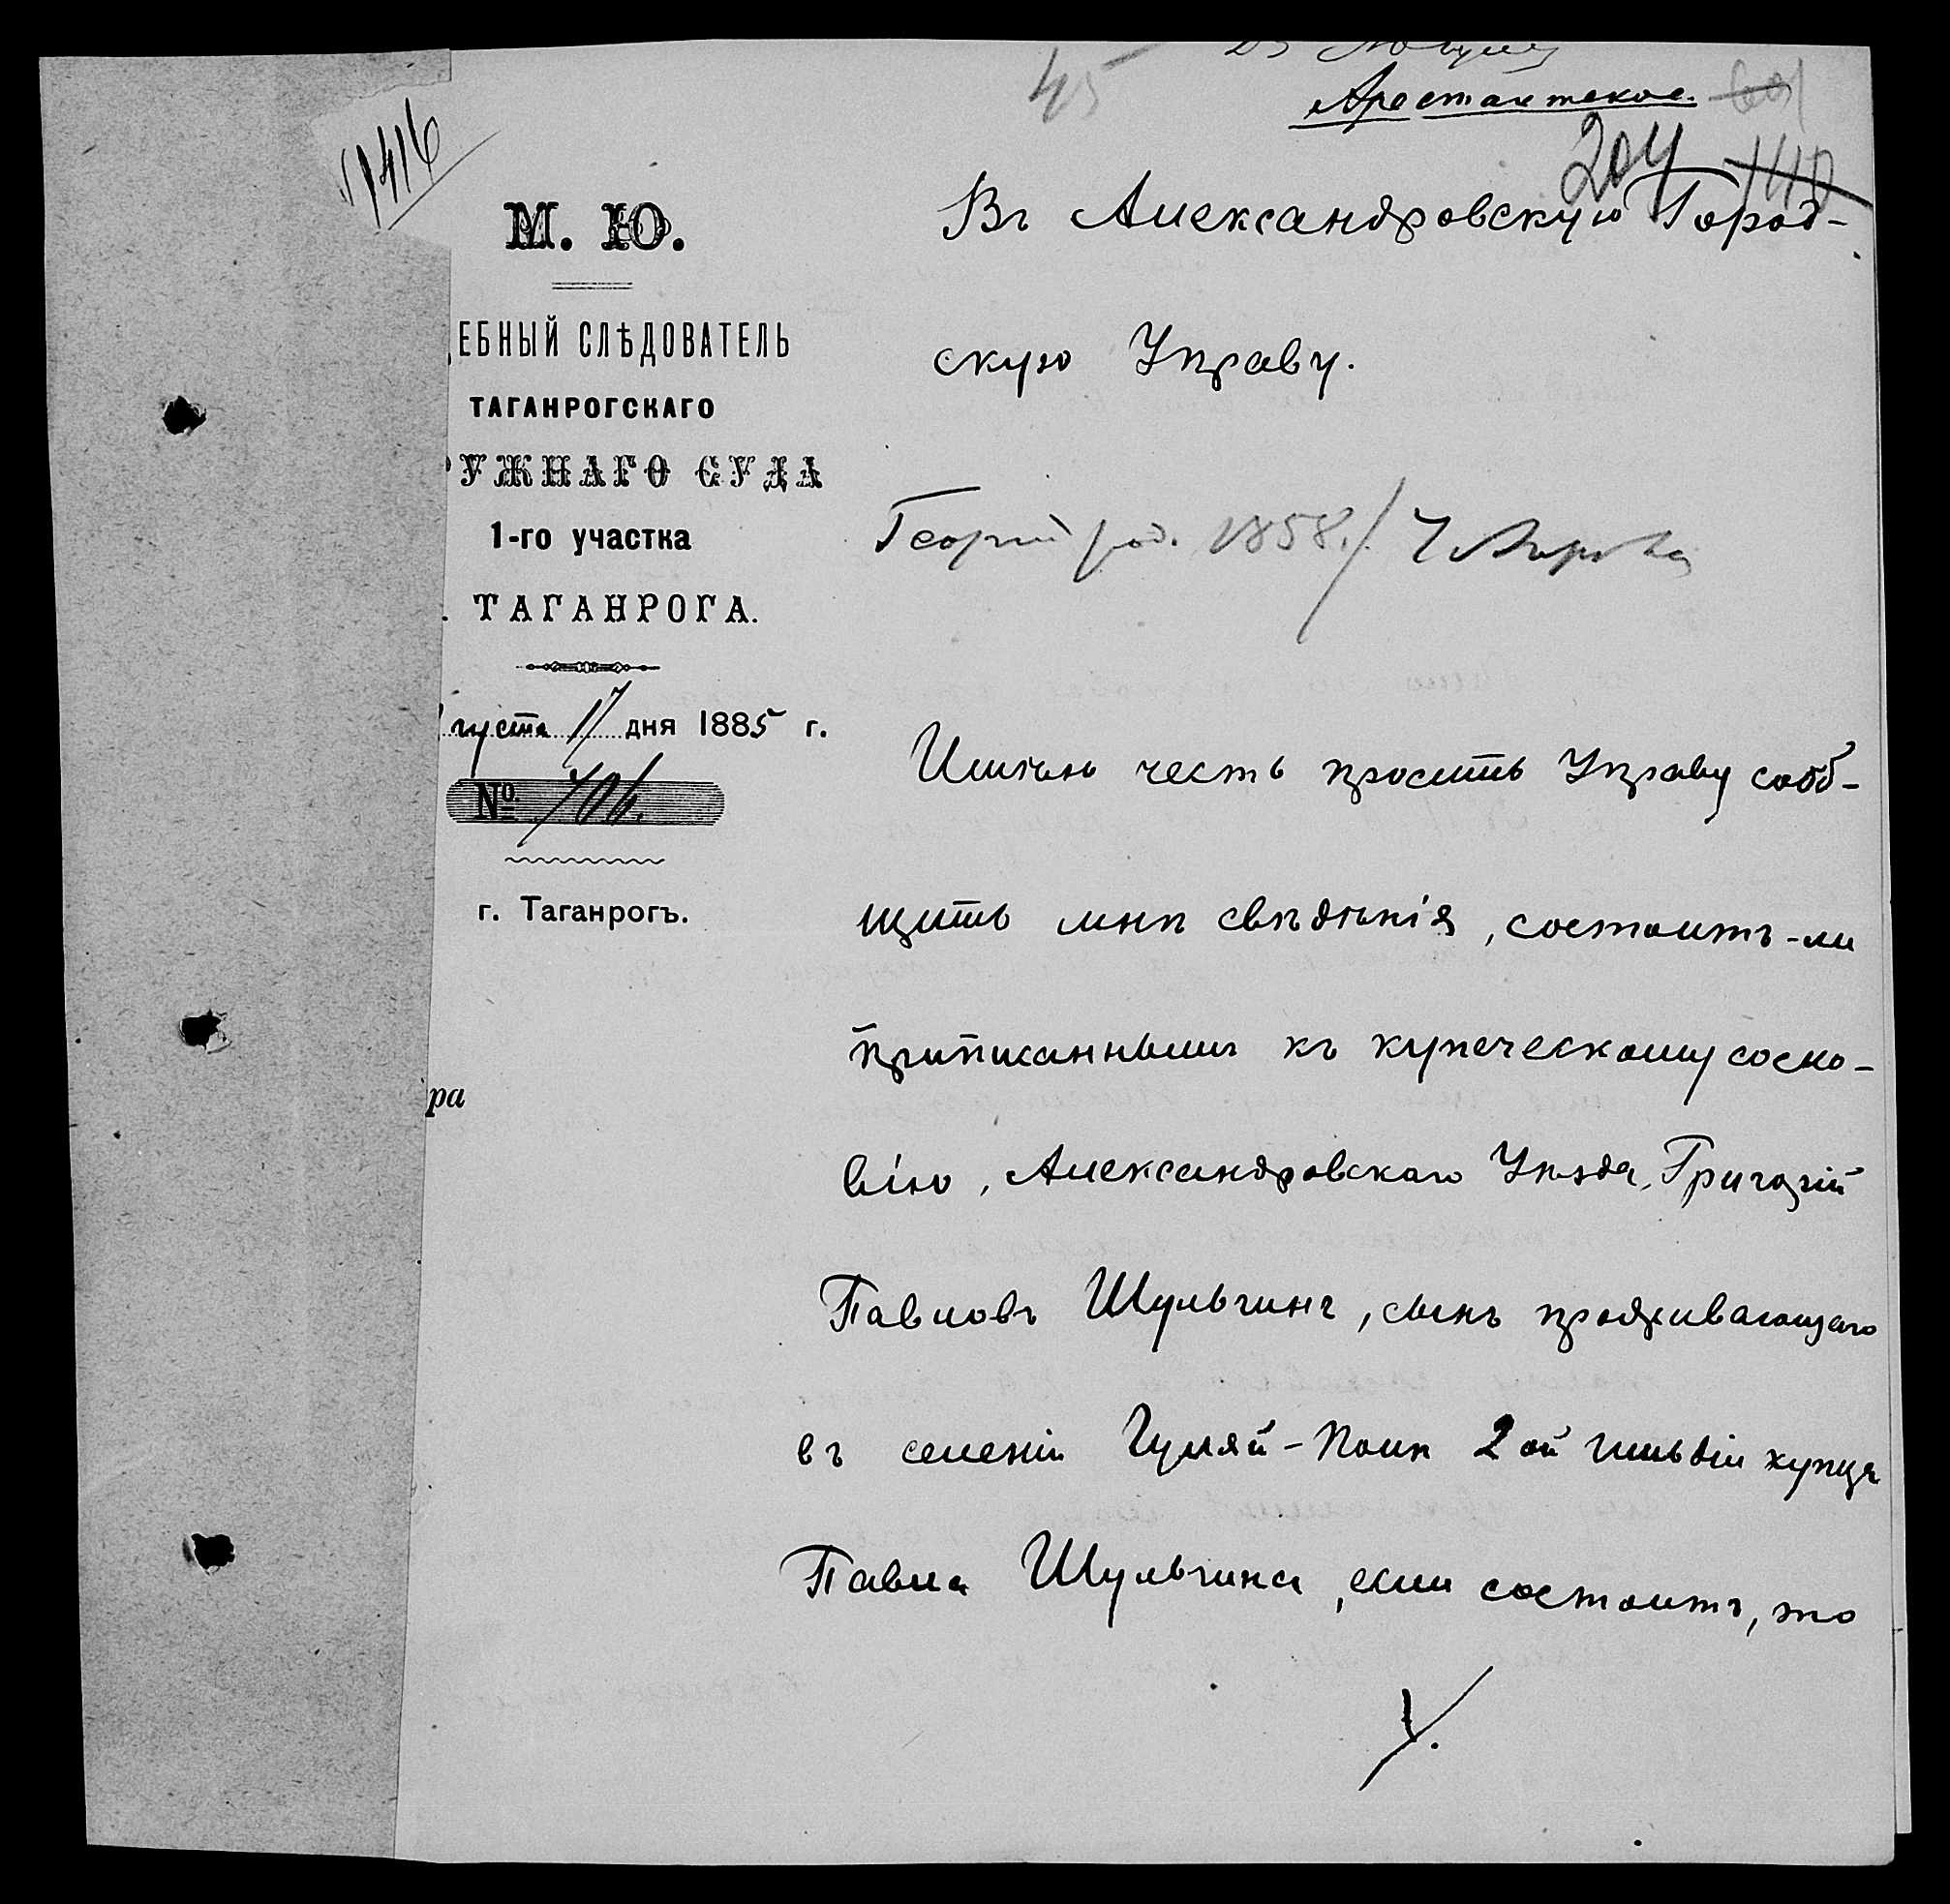 45
Арестантское.
204
1410
№ 1416
М. Ю.
ДЕБНЫЙ СЛѢДОВАТЕЛЬ
ТАГАНРОГСКАГО
РУЖНАГО СУДА
1-го участка
. ТАГАНРОГА.
густа 17 дня 1885 г.
№ 706.
г. Таганрогъ.
ра
Въ Александровскую Город-
скую Управу.
Георгій род. 1858. / 7
Имѣю честь просить Управу сооб-
щить мнѣ свѣдѣнія, состоитъ-ли
приписаннымъ къ купеческому сосло-
вію, Александровскаго Уѣзда, Григорій
Павловъ Шульгинъ, сынъ проживающаго
въ селеніи Гуляй-Поли 2ой гильдіи купца
Павла Шульгина, если состоитъ, то